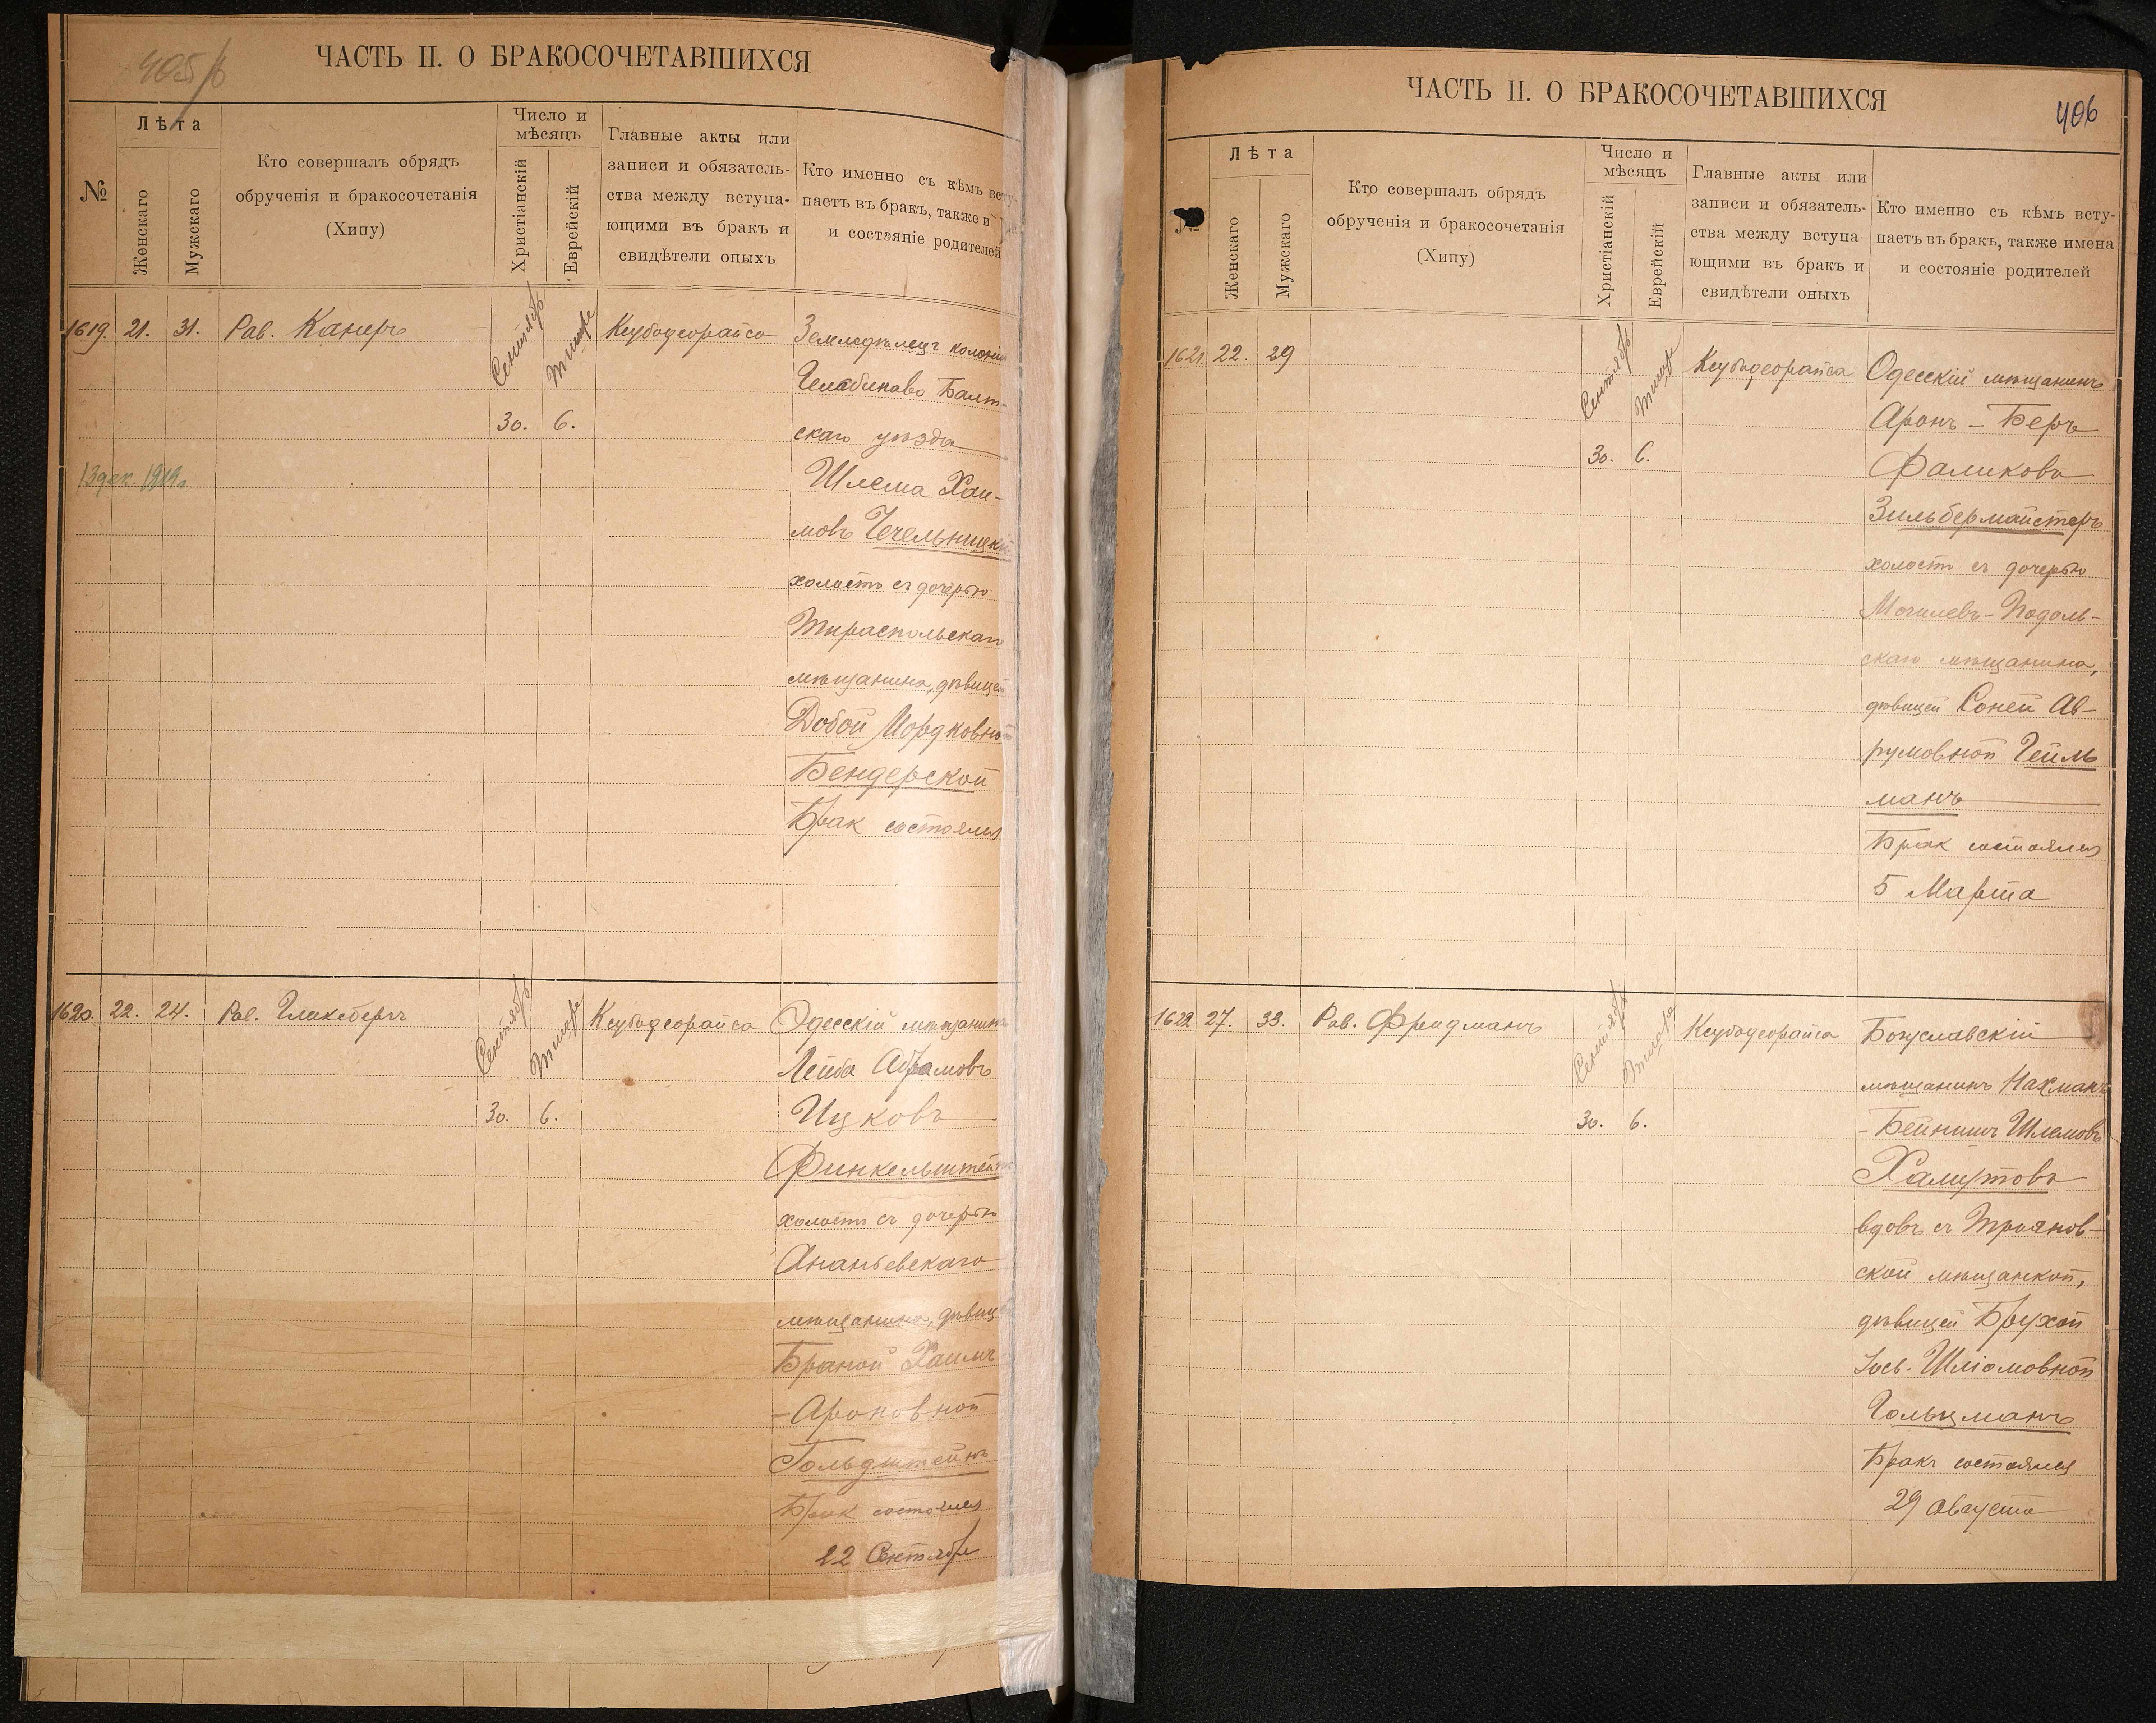 405/б
ЧАСТЬ II. О БРАКОСОЧЕТАВШИХСЯ
№
Лѣта
Женскаго
Мужскаго
Кто совершалъ обрядъ
обрученія и бракосочетанія
(Хипу)
Число и
мѣсяцъ
Христіанскій
Еврейскій
Главные акты или
записи и обязатель-
ства между вступа-
ющими въ бракъ и
свидѣтели оныхъ
Кто именно съ кѣмъ всту-
паетъ въ бракъ, также и
и состояніе родителей
1619. 21. 31. Рав. Канеръ
Сентябрь
Тишре
30. 6.
Ксубодеорайса
Земледѣлецъ колоніи
Балт-
скаго уѣзда
Шлема Хаи-
мовъ Чечельницкій
холостъ съ дочерью
Тираспольскаго
мѣщанина, дѣвицей
Добой Мордковной
Бендерской
Брак состоялся
13 дек 1919г
1620. 22. 24. Рав. Гликсбергъ
Сентябрь
Тишре
30. 6.
Ксубодеорайса
Одесскій мѣщанинъ
Лейба Абрамовъ
Ицковъ
Финкельштейнъ
холостъ съ дочерью
Ананьевскаго
мѣщанина, дѣвиц
Браной Хаимъ
-Ароновной
Гольдштейнъ
Брак состоялся
22 Сентября
ЧАСТЬ II. О БРАКОСОЧЕТАВШИХСЯ
406
№
Лѣта
Женскаго
Мужскаго
Кто совершалъ обрядъ
обрученія и бракосочетанія
(Хипу)
Число и
мѣсяцъ
Христіанскій
Еврейскій
Главные акты или
записи и обязатель-
ства между вступа-
ющими въ бракъ и
свидѣтели оныхъ
Кто именно съ кѣмъ всту-
паетъ въ бракъ, также имена
и состояніе родителей
1621 22. 29
Сентябрь
Тишре
30. 6.
Ксубодеорайса
Одесскій мѣщанинъ
Аронъ-Беръ
Фаликовъ
Зильбермайстеръ
холостъ съ дочерью
Могилевъ-Подоль-
скаго мѣщанина,
дѣвицей Соней Ав-
румовной Гейль
манъ
Брак состоялся
5 Марта
1622 27. 33. Рав. Фридманъ
Сентябрь
Тишре
30. 6.
Ксубодеорайса
Богуславскій
мѣщанинъ Нахманъ
-Бейнишъ Шлемовъ
Халутовъ
вдовъ съ Трояов-
ской мѣщанкой,
дѣвицей Брухой
Іось-Шліомовной
Гольцманъ
Бракъ состоялся
29 Августа